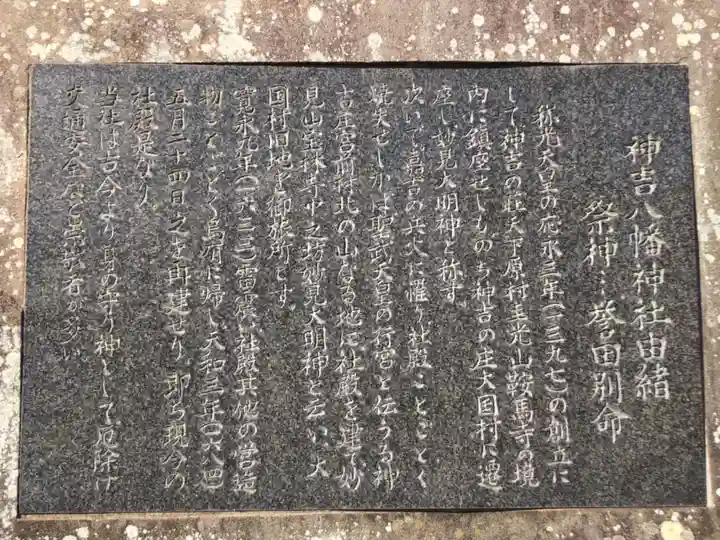 神吉八幡神社由緒
祭神…誉田別命
称光天皇の応永三年(一三九七)の創立に
して神吉の荘天下原村圭光山鞍馬寺の境
内に鎮座せしものち神吉の庄大国村に遷
座し妙見大明神と称す
次いで嘉吉の兵火に罹り社殿ことごとく
焼失せしかば聖武天皇の行宮と伝うる神
吉庄宮前村北の山なる地に社殿を建て妙
見山宝林寺中之坊妙見大明神と云い大
国村旧地を御旅所とす
寛永九年(一六三三)雷震い社殿其他の営造
物ことごとく烏有に帰し天和三年(一六八四)
五月二十四日之を再建せり即ち現今の
社殿是なり
当社は古今より身の守り神として厄除け
交通安全など崇敬者が多い